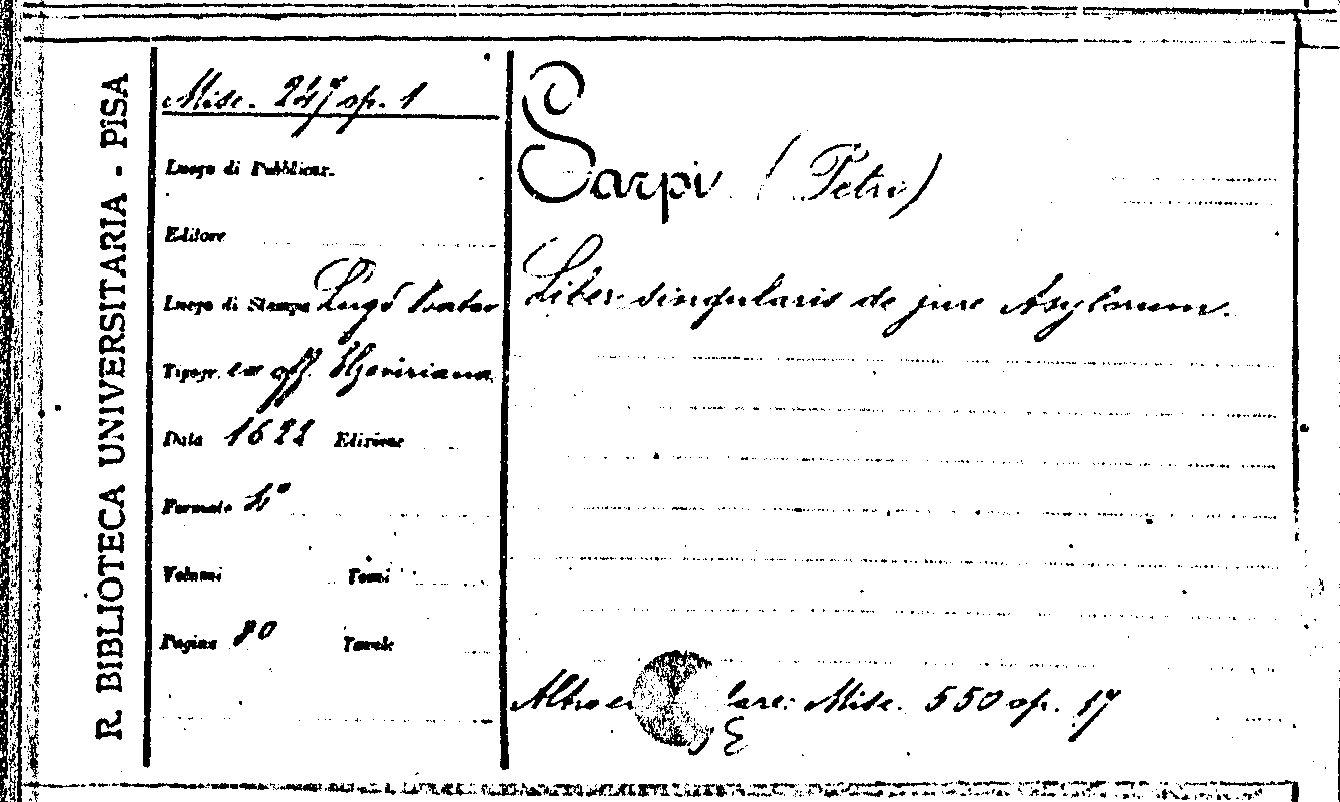 R. BIBLIOTECA UNIVERSITARIA - PISA
Misc. 247 op. 1
Luogo di Pubblicaz.
Editore
Luogo di Stampa Lugd Batav
Tipogr. ex off. Elzeviriana
Data 1622 Edizione
Formato 4°
Volumi Tomi
Pagine 80 Tavole
Sarpi (Petri)
Liber singularis de jure Asylorum.
Altro Misc. 550 op. 17